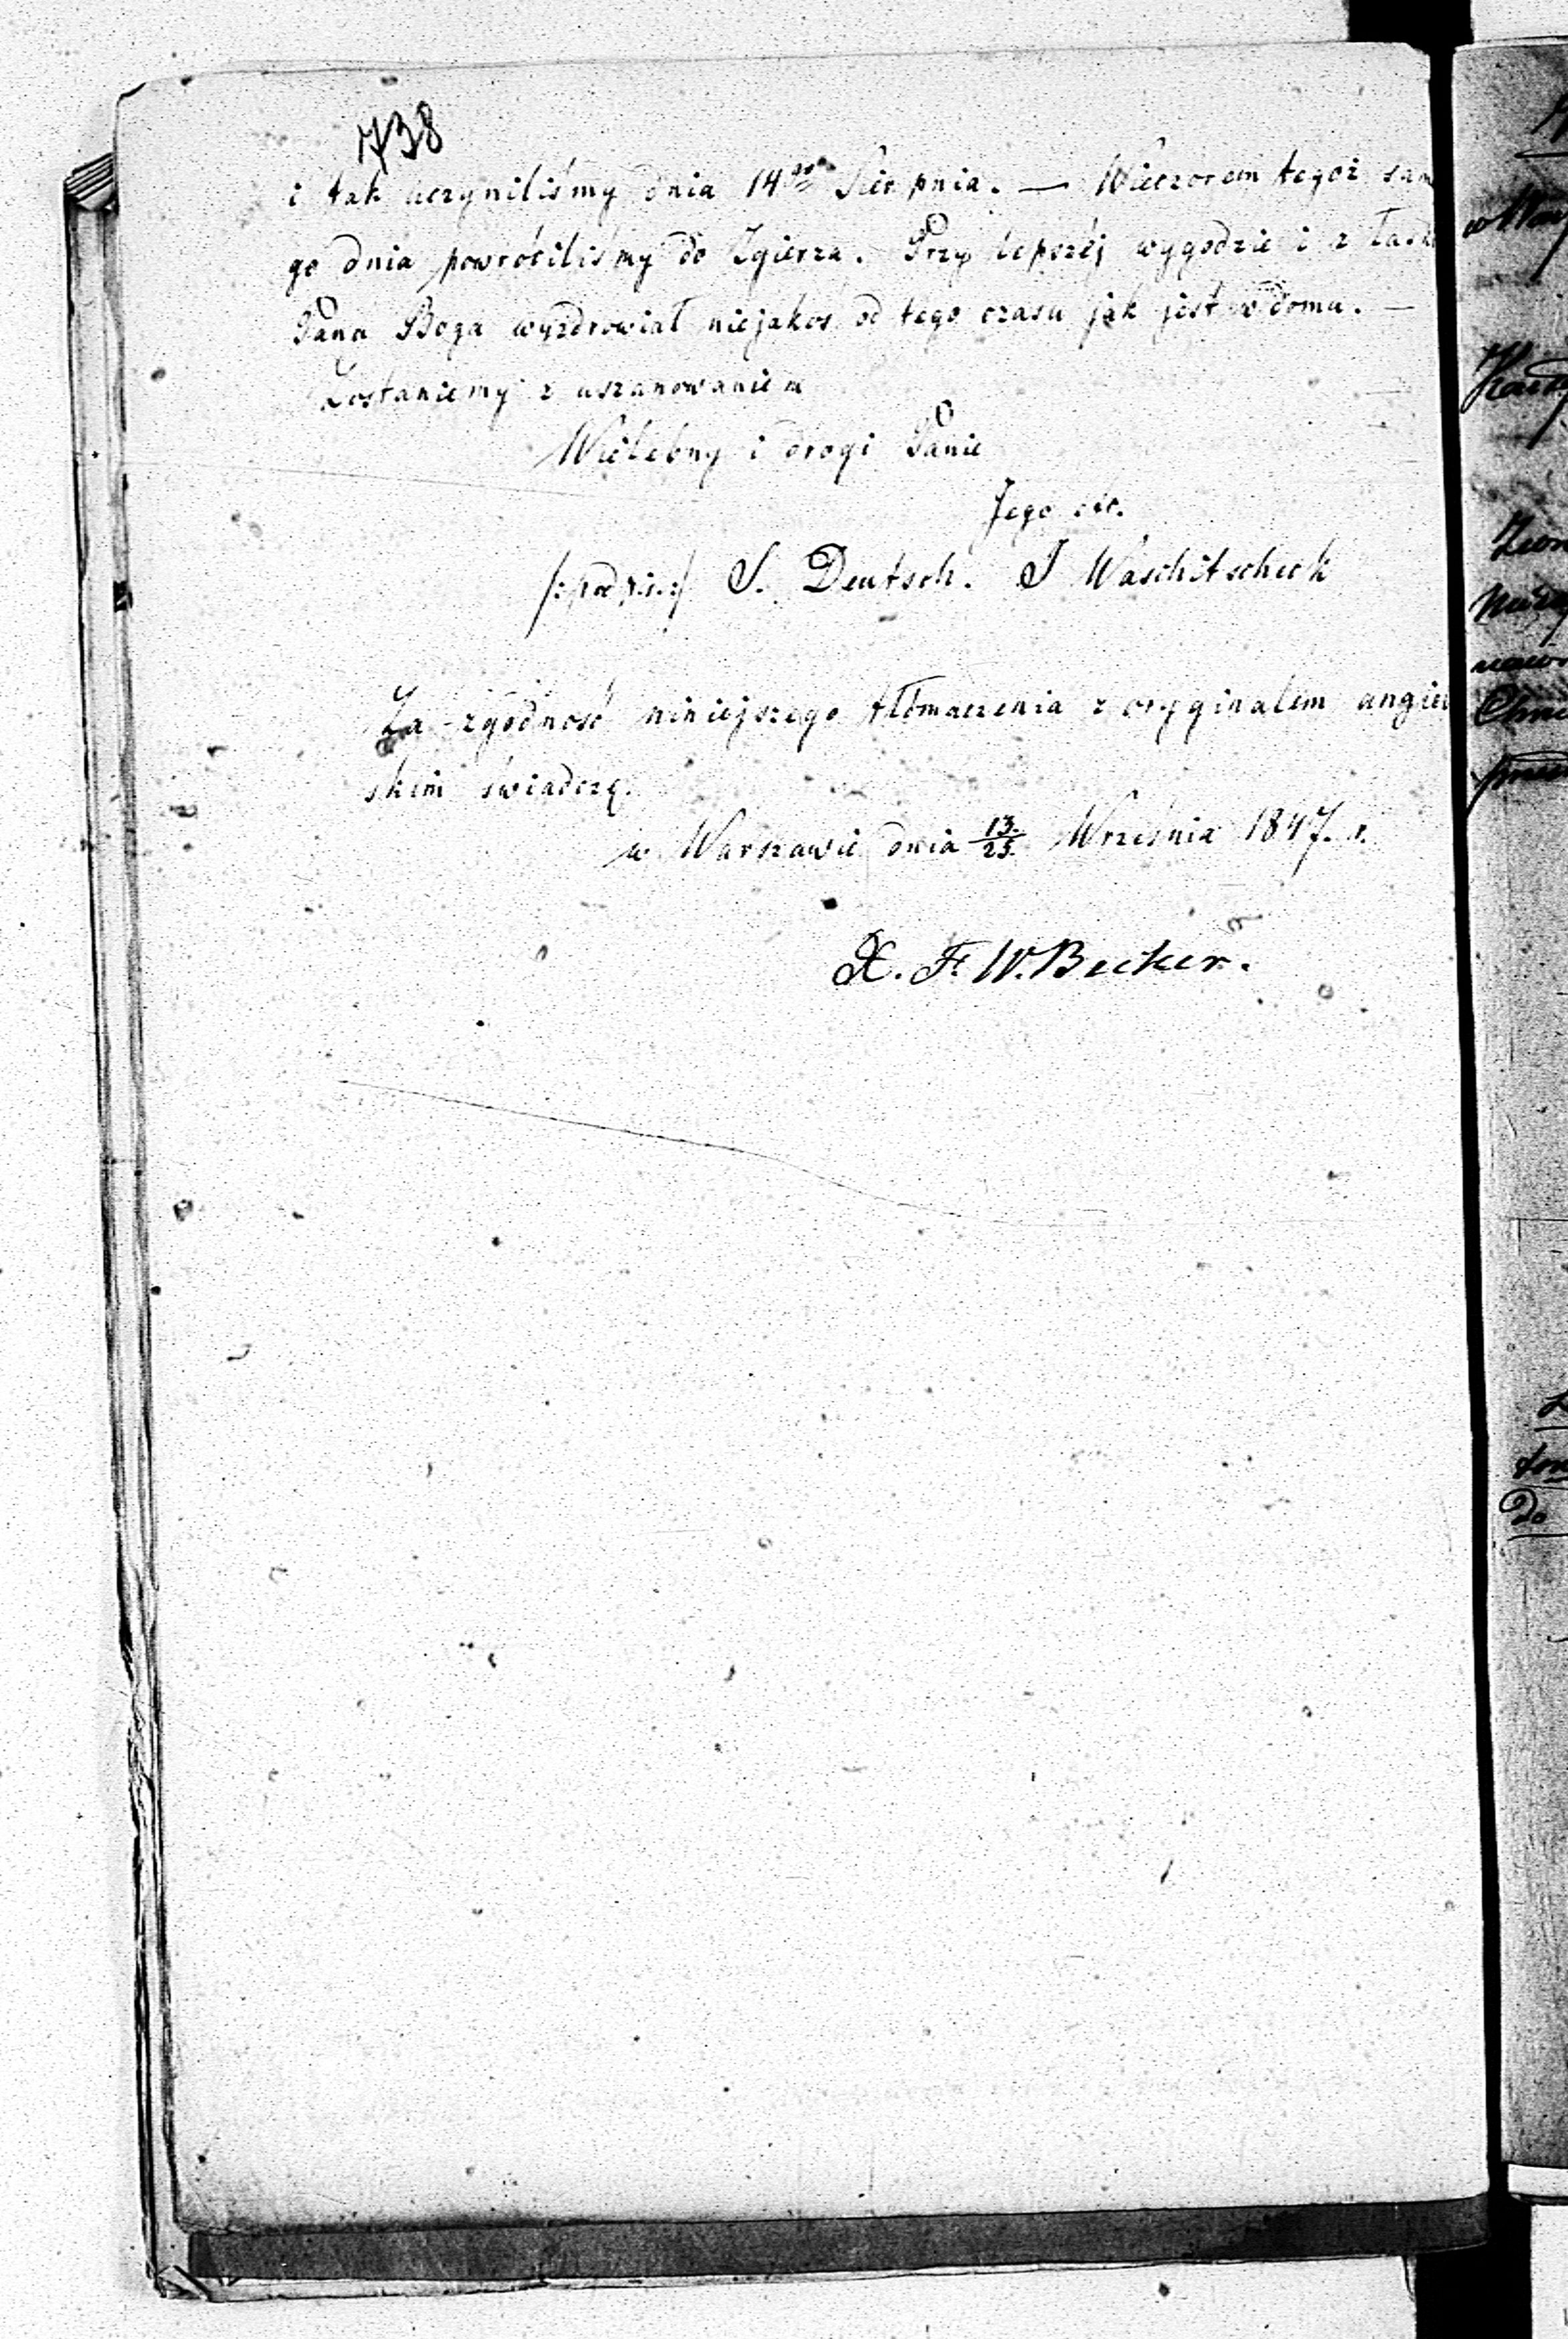 738
i tak uczyniliśmy dnia 14go Sierpnia. — Wieczorem tegoż sam
go dnia powróciliśmy do Zgierza. Przy lepszéj wygodzie i z łask
Pana Boga wyzdrowiał niejakoś od tego czasu jak jest w domu. —
Zostaniemy z uszanowaniem
Wielebny i drogi Panie
Jego etc.
/:podpis.:/ S. Deutsch. J Waschitscheck
Za zgodność niniejszego tłómaczenia z oryginałem angiel
skim świadczę.
w Warszawie dnia 13./25. Września 1847. r.
X. F. W. Becker.
Do